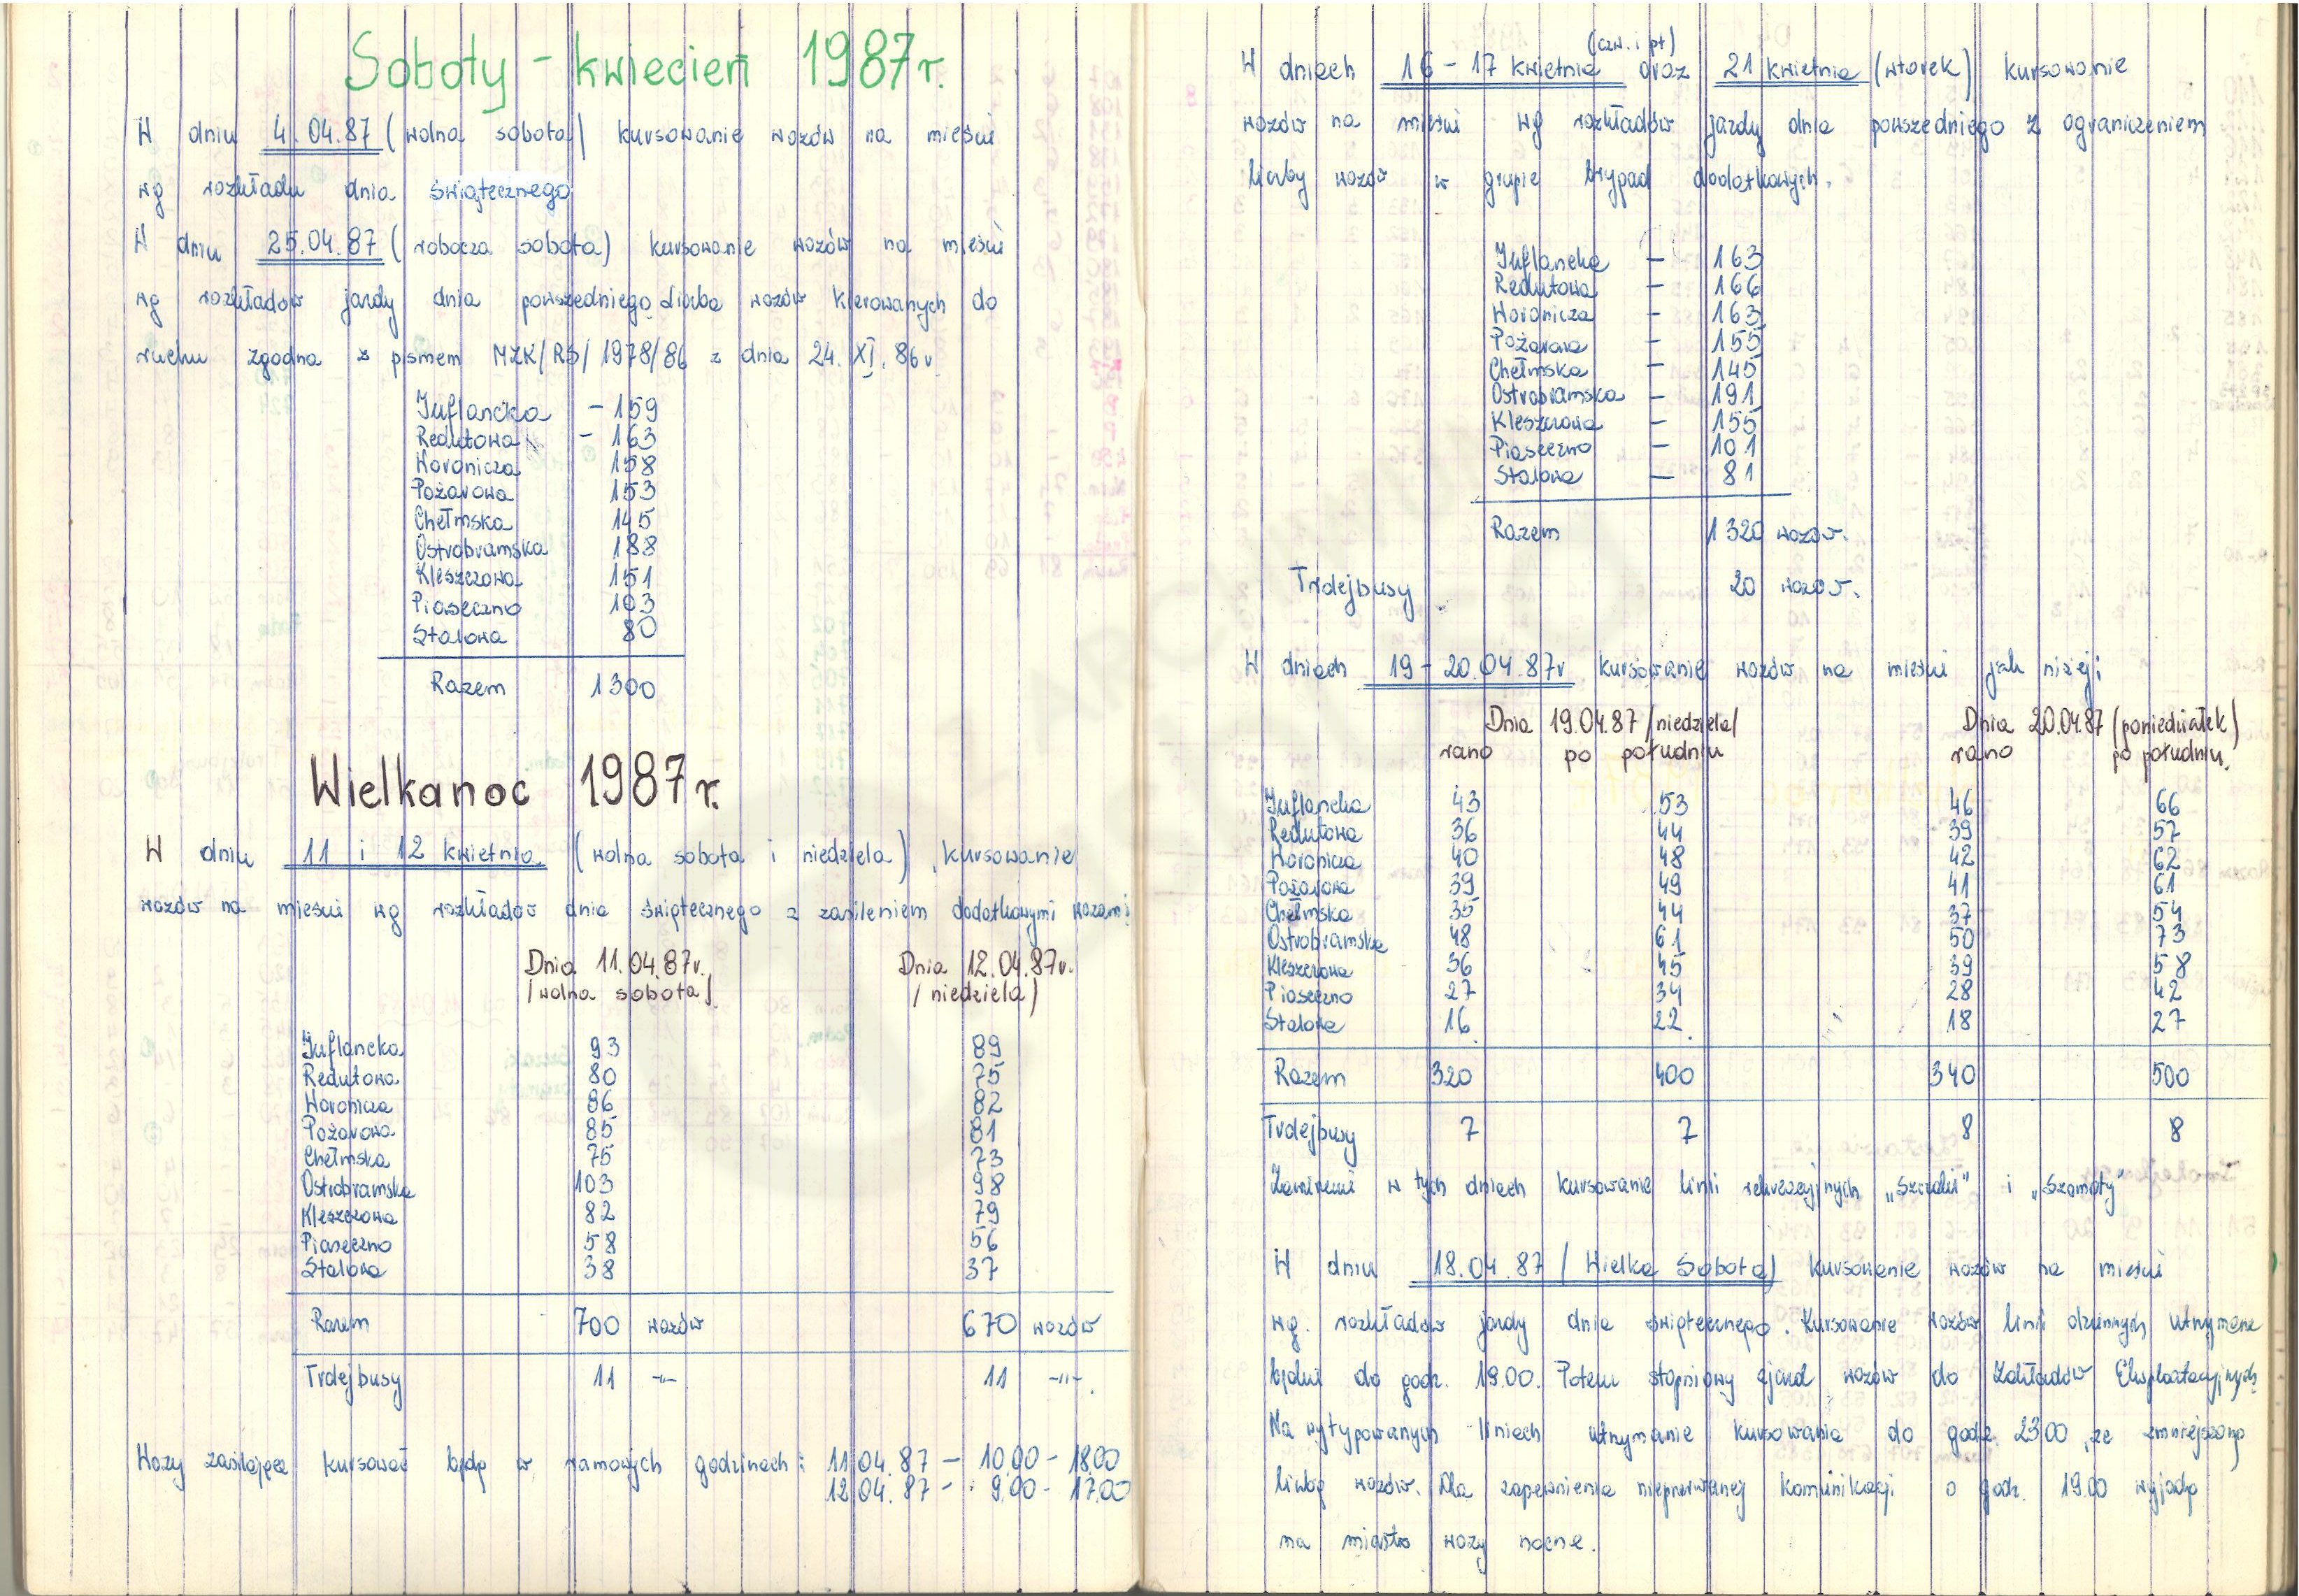 Soboty - kwiecień 1987 r.
W dniu 4.04.87 (wolna sobota) kursowanie wozów na mieście
wg rozkładu dnia świątecznego
W dniu 25.04.87 (robocza sobota) kursowanie wozów na mieście
wg rozkładów jazdy dnia powszedniego. Liczba wozów kierowanych do
ruchu zgodna z pismem MZK/RS/1978/86 z dnia 24.XI.86r
Inflancka - 159
Redutowa - 163
Woronicza 158
Pożarowa 153
Chełmska 145
Ostrobramska 188
Kleszczowa 151
Piaseczno 103
Stalowa 80
Razem 1300
Wielkanoc 1987 r.
W dniu 11 i 12 kwietnia (wolna sobota i niedziela) kursowanie
wozów na mieście wg rozkładów dnia świątecznego z zasileniem dodatkowymi wozami
Dnia 11.04.87r. Dnia 12.04.87r.
/wolna sobota/ /niedziela/
Inflancka 93 89
Redutowa 80 75
Woronicza 86 82
Pożarowa 85 81
Chełmska 75 73
Ostrobramska 103 98
Kleszczowa 82 79
Piaseczno 58 56
Stalowa 38 37
Razem 700 wozów 670 wozów
Trolejbusy 11 -"- 11 -"-.
Wozy zasilające kursować będą w ramowych godzinach: 11.04.87 - 10.00 - 18.00
12.04.87 - 9.00 - 17.00
(czw. i pt)
W dniach 16 - 17 kwietnia oraz 21 kwietnia (wtorek) kursowanie
wozów na mieście wg rozkładów jazdy dnia powszedniego z ograniczeniem
liczby wozów w grupie brygad dodatkowych.
Inflancka - 163
Redutowa - 166
Woronicza - 163
Pożarowa - 155
Chełmska - 145
Ostrobramska - 191
Kleszczowa - 155
Piaseczno - 101
Stalowa - 81
Razem 1320 wozów.
Trolejbusy 20 wozów.
W dniach 19 - 20.04.87r kursowanie wozów na mieście jak niżej:
Dnia 19.04.87 /niedziela/ Dnia 20.04.87 (poniedziałek)
rano po południu rano po południu.
Inflancka 43 53 46 66
Redutowa 36 44 39 57
Woronicza 40 48 42 62
Pożarowa 39 49 41 61
Chełmska 35 44 37 54
Ostrobramska 48 61 50 73
Kleszczowa 36 45 39 58
Piaseczno 27 34 28 42
Stalowa 16 22 18 27
Razem 320 400 340 500
Trolejbusy 7 7 8 8
Zawiesić w tych dniach kursowanie linii rekreacyjnych „Szczaki" i „Szamoty"
W dniu 18.04.87 /Wielka Sobota) kursowanie wozów na mieście
wg. rozkładów jazdy dnia świątecznego. Kursowanie wozów linii dziennych utrzymane
będzie do godz. 19.00. Potem stopniowy zjazd wozów do Zakładów Eksploatacyjnych
Na wytypowanych liniach utrzymanie kursowania do godz. 23.00, ze zmniejszoną
liczbą wozów. Dla zapewnienia nieprzerwanej komunikacji o godz. 19.00 wyjadą
na miasto wozy nocne.